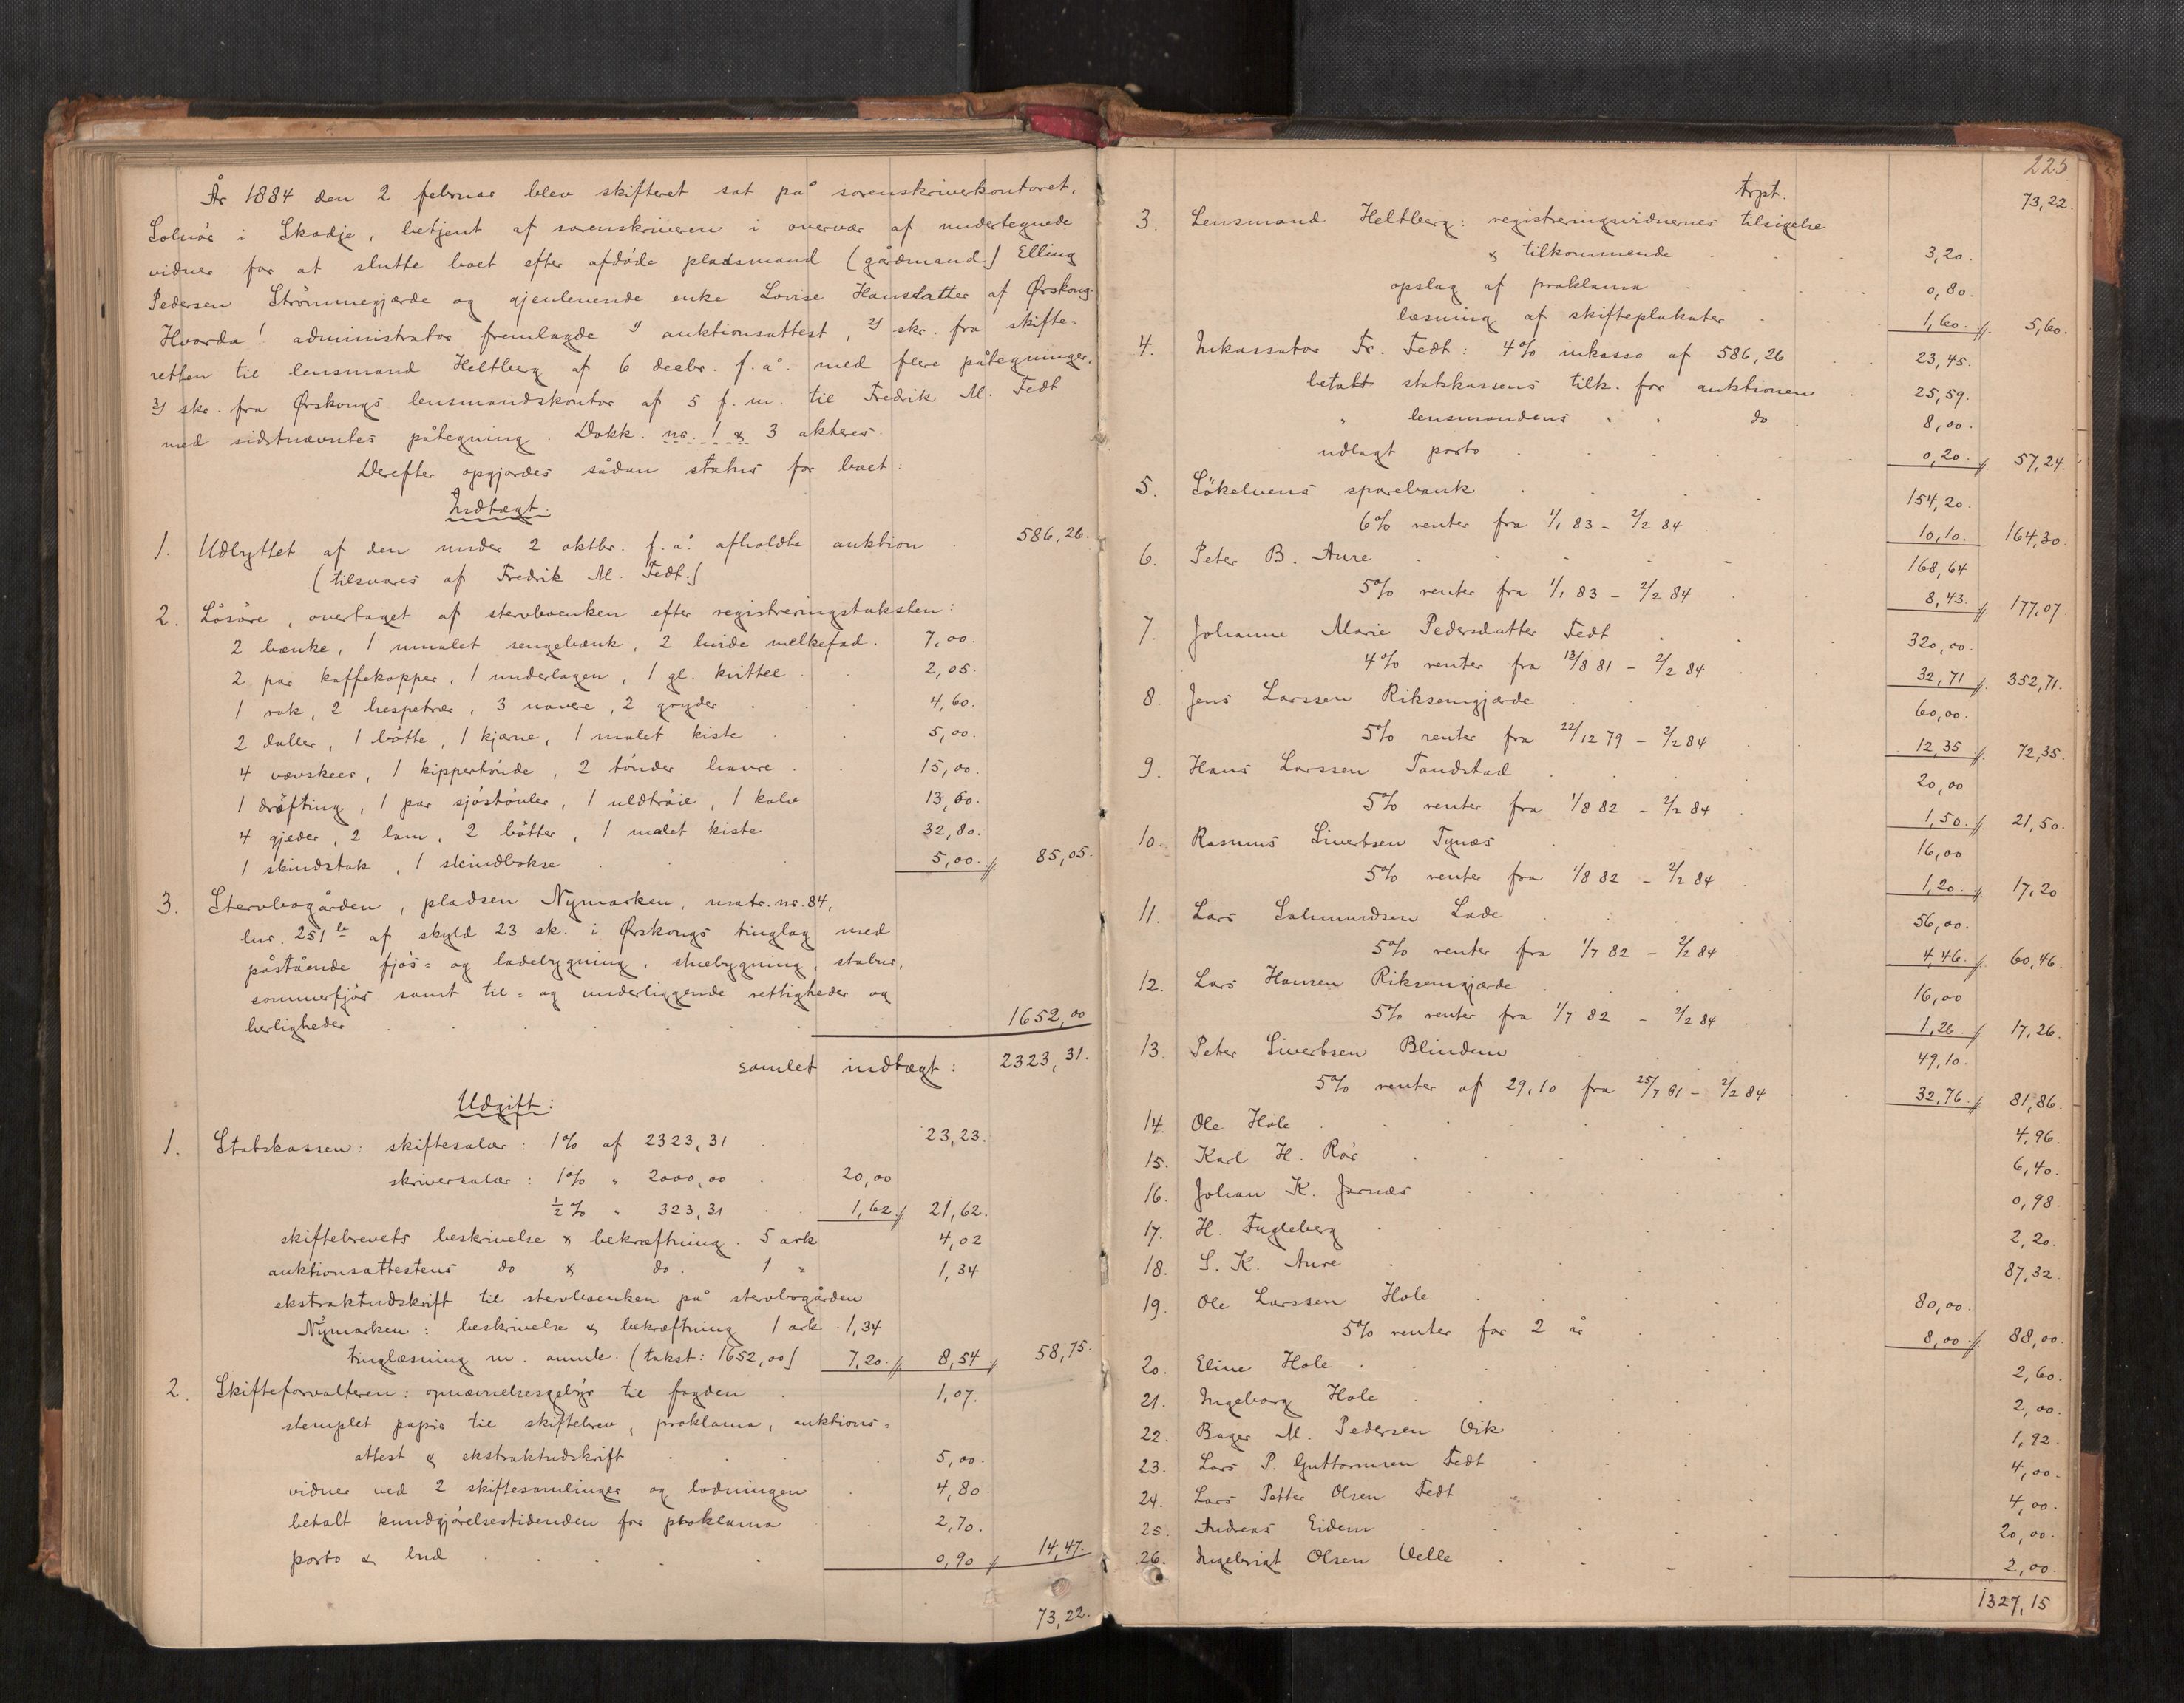 År 1884 den 2 februar blev skifteret sat på sorenskriverkontoret,
Solnør i Skodje, betjent af sorenskriveren i overvær af undertegnede
vidner for at slutte boet efter afdøde pladsmand (gårdmand) Elling
Pedersen Strømmegjærde og gjenlevende enke Lovise Hansdatter af Ørskoug.
Hvorda! administrator fremlagde 1) auktionsattest, 2) skr. fra skifte-
retten til lensmand Heltberg af 6 decbr. f. å. med flere påtegninger,
3) skr. fra Ørskougs lensmandskontor af 5 f. m. til Fredrik M. Fedt
med sidstnævntes påtegning. Dokk. nr. 1 & 3 akteres.
Derefter opgjordes sådan status for boet:
Indtægt.
1. Udbyttet af den under 2 oktbr. f. å. afholdte auktion . 586,26.
(tilsvares af Fredrik M. Fedt.)
2. Løsøre, overtaget af stervboenken efter registreringstaksten:
2 bænke, 1 umalet sengebænk, 2 hvide melkefad. 7,00.
2 par kaffekopper, 1 underlagen, 1 gl. kvittel . . 2,05.
1 rok, 2 hespetrær, 3 navere, 2 gryder . . . 4,60.
2 daller, 1 bøtte, 1 kjærne, 1 malet kiste . . 5,00.
4 vævskeer, 1 kippertønde, 2 tønder havre . . 15,00.
1 drøfting, 1 par sjøstøvler, 1 uldtrøie, 1 kalv 13,60.
4 gjeder, 2 lam, 2 bøtter, 1 malet kiste 32,80.
1 skindstak, 1 skindbokse . . . . 5,00. //. 85,05.
3. Stervbogården, pladsen Nymarken, matr. nr. 84,
lnr. 251 b af skyld 23 sk. i Ørskougs tinglag med
påstående fjøs- og ladebygning, stuebygning, stabur,
sommerfjøs samt til- og underliggende rettigheder og
herligheder . . . . . . 1652,00
samlet indtægt: 2323,31.
Udgift:
1. Statskassen: skiftesalær: 1% af 2323,31 . . 23,23.
skriversalær: 1% " 2000,00 . . 20,00
½% " 323,31 . . 1,62 //. 21,62.
skiftebrevets beskrivelse & bekræftning. 5 ark 4,02
auktionsattestens do & do. 1 " 1,34
ekstraktudskrift til stervboenken på stervbogården
Nymarken: beskrivelse & bekræftning 1 ark . 1,34
tinglæsning m. anmk. (takst: 1652,00) 7,20. //. 8,54 //. 58,75.
2. Skifteforvalteren: opnævnelsesgebyr til fogden . 1,07.
stemplet papir til skiftebrev, proklama, auktions-
attest & ekstraktudskrift . . . . 5,00.
vidner ved 2 skiftesamlinger og lodningen . 4,80.
betalt kundgjørelsestidenden for proklama . 2,70.
porto & bud . . . . . 0,90 //. 14,47.
73,22.
225
trpt. 73,22.
3. Lensmand Heltberg: registreringsvidnernes tilsigelse
& tilkommende . . . 3,20.
opslag af proklama . . . . 0,80.
læsning af skifteplakater . . . 1,60. //. 5,60.
4. Inkassator Fr. Fedt: 4% inkasso af 586,26 . . 23,45.
betalt statskassens tilk. for auktionen . 25,59.
" lensmandens " " do . 8,00.
udlagt porto . . . . 0,20. //. 57,24.
5. Søkelvens sparebank . . . . 154,20.
6% renter fra 1/1 83 - 2/2 84 . 10,10. 164,30.
6. Peter B. Aure . . . . 168,64
5% renter fra 1/1 83 - 2/2 84 . 8,43. //. 177,07
7. Johanne Marie Pedersdatter Fedt . . . 320,00.
4% renter fra 13/8 81 - 2/2 84 . 32,71 //. 352,71.
8. Jens Larssen Riksemgjærde . . . 60,00.
5% renter fra 22/12 79 - 2/2 84 . 12,35 //. 72,35.
9. Hans Larssen Tandstad . . . 20,00
5% renter fra 1/8 82 - 2/2 84 . 1,50. //. 21,50.
10. Rasmus Sivertsen Tynæs . . . 16,00
5% renter fra 1/8 82 - 2/2 84 . 1,20. //. 17,20
11. Lars Salmundsen Lade . . . 56,00.
5% renter fra 1/7 82 - 2/2 84 . 4,46. //. 60,46.
12. Lars Hansen Riksemgjærde . . . 16,00
5% renter fra 1/7 82 - 2/2 84 . 1,26. //. 17,26.
13. Peter Sivertsen Blindem . . . 49,10.
5% renter af 29,10 fra 25/7 61 - 2/2 84 . 32,76. //. 81,86.
14. Ole Hole . . . . 4,96.
15. Karl H. Rør . . . . 6,40.
16. Johan K. Jarnæs . . . . 0,98.
17. H. Fugleberg . . . . 2,20.
18. S. K. Aure . . . . 87,32.
19. Ole Larssen Hole . . . 80,00.
5% renter for 2 år . . 8,00 //. 88,00.
20. Eline Hole . . . . 2,60.
21. Ingeborg Hole . . . . 2,00.
22. Bager M. Pedersen Vik . . . 1,92.
23. Lars P. Guttormsen Fedt . . . 4,00.
24. Lars Petter Olsen Fedt . . . 4,00.
25. Andreas Eidem . . . . 20,00.
26. Ingebrigt Olsen Velle . . . 2,00.
1327,15